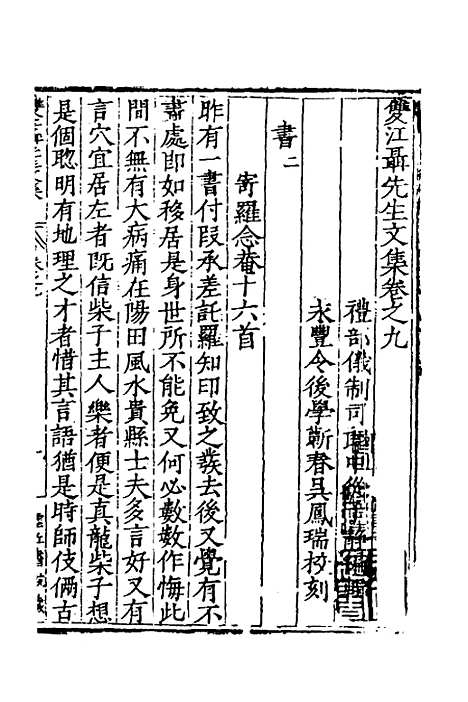 雙江聶先生文集卷之九
禮部儀制司
永豐令後學蘄春吳鳳瑞挍刻
書二
寄羅念菴十六首
昨有一書付段承差託羅知印致之發去後又覺有不
盡處即如移居是身世所不能免又何必數數作悔此
間不無有大病痛在陽田風水貴縣士夫多言好又有
言穴宜居左者既信柴子主人樂者便是真龍柴子想
是個聰明有地理之才者惜其言語猶是時師伎倆古